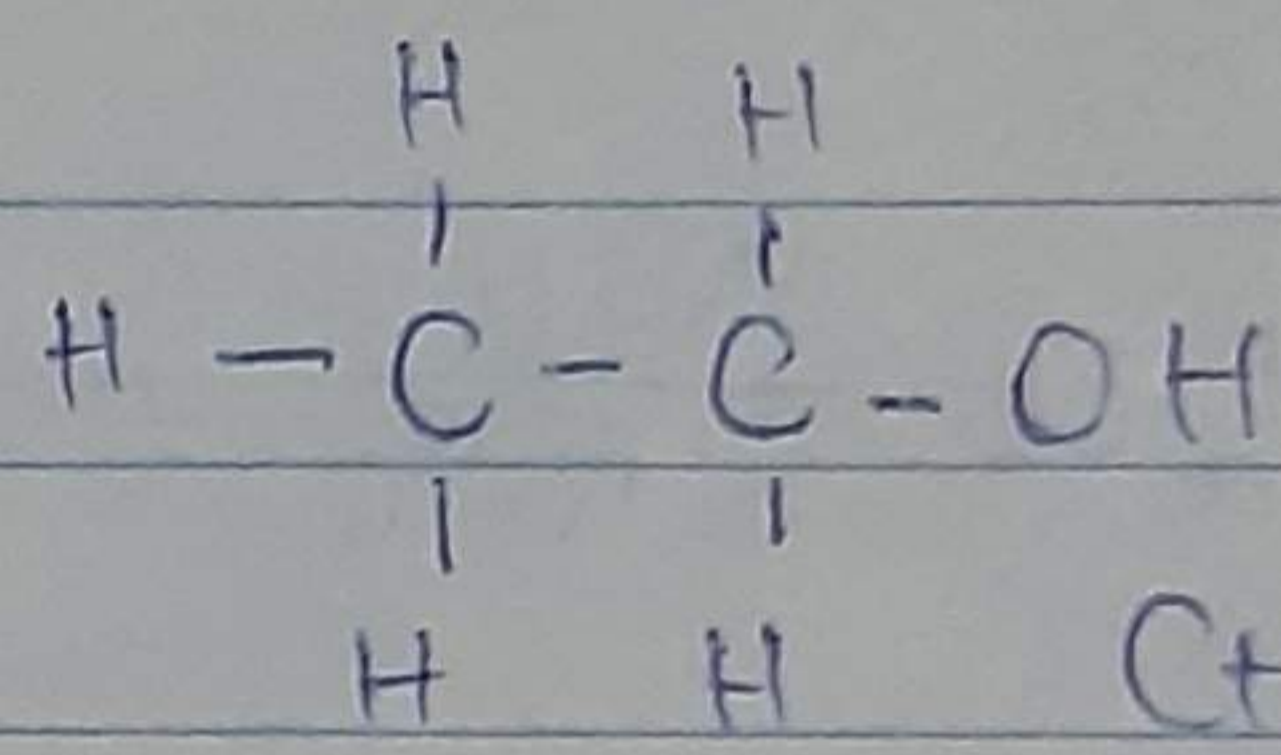 H H
| |
H — C - C - OH
| |
H H